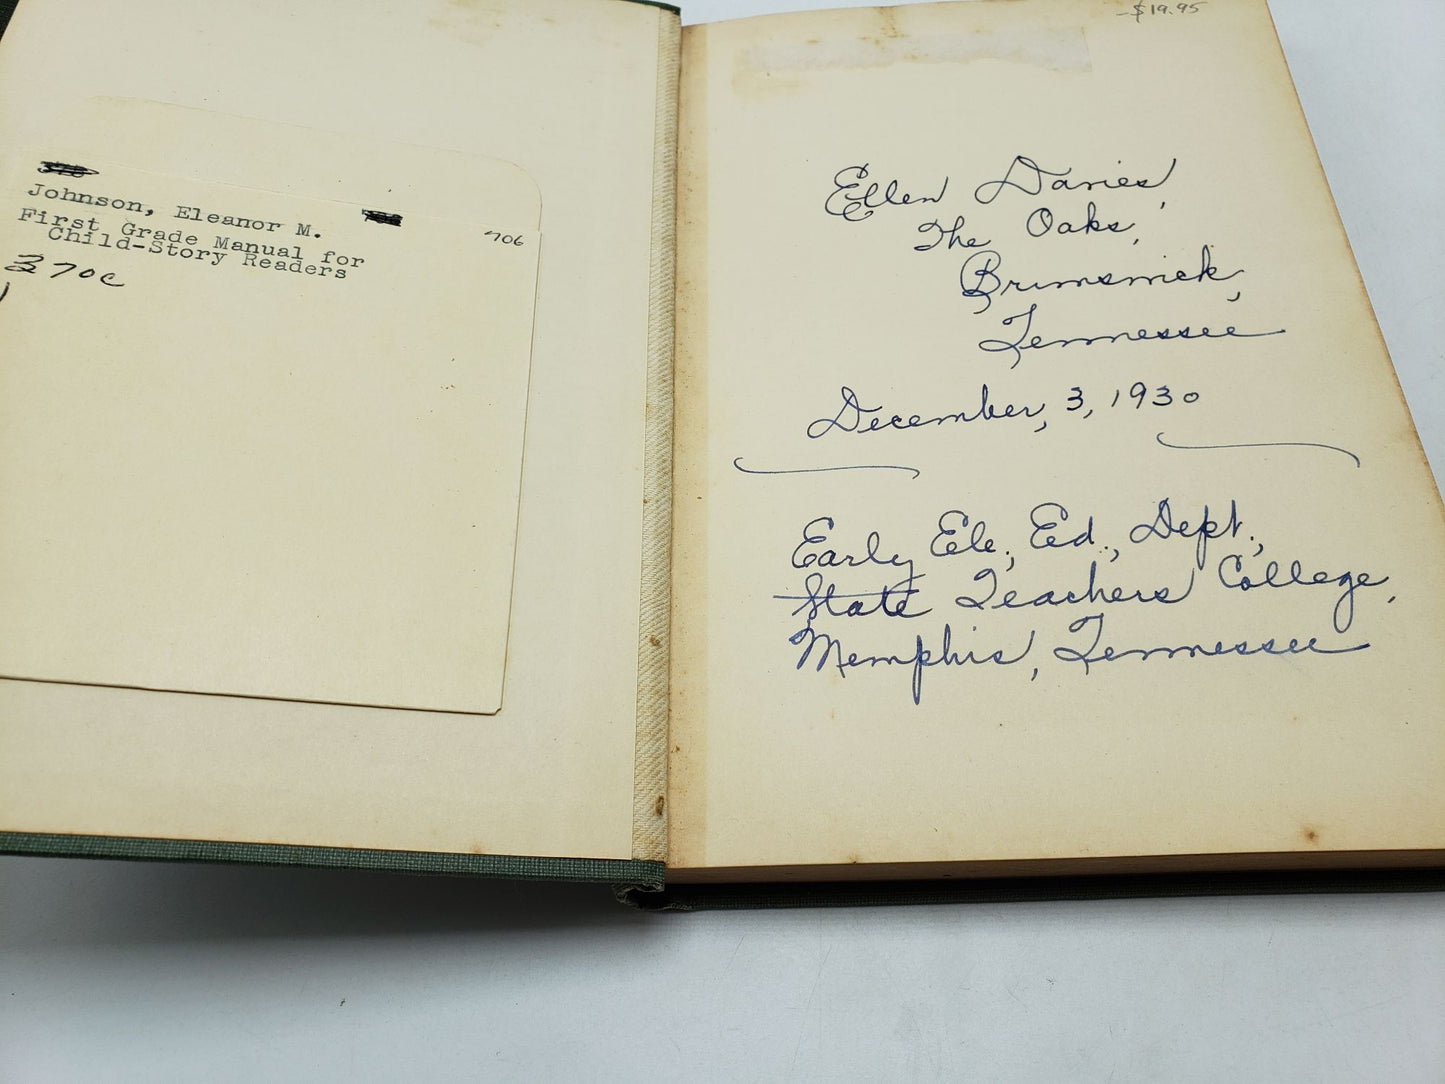 Johnson, Eleanor M.
706
First Grade Manual for
Child-Story Readers
370c
-$19.95
Ellen Davies,
The Oaks,
Brunswick,
Tennessee
December, 3, 1930
Early Ele., Ed., Dept.,
State Teachers College,
Memphis, Tennessee